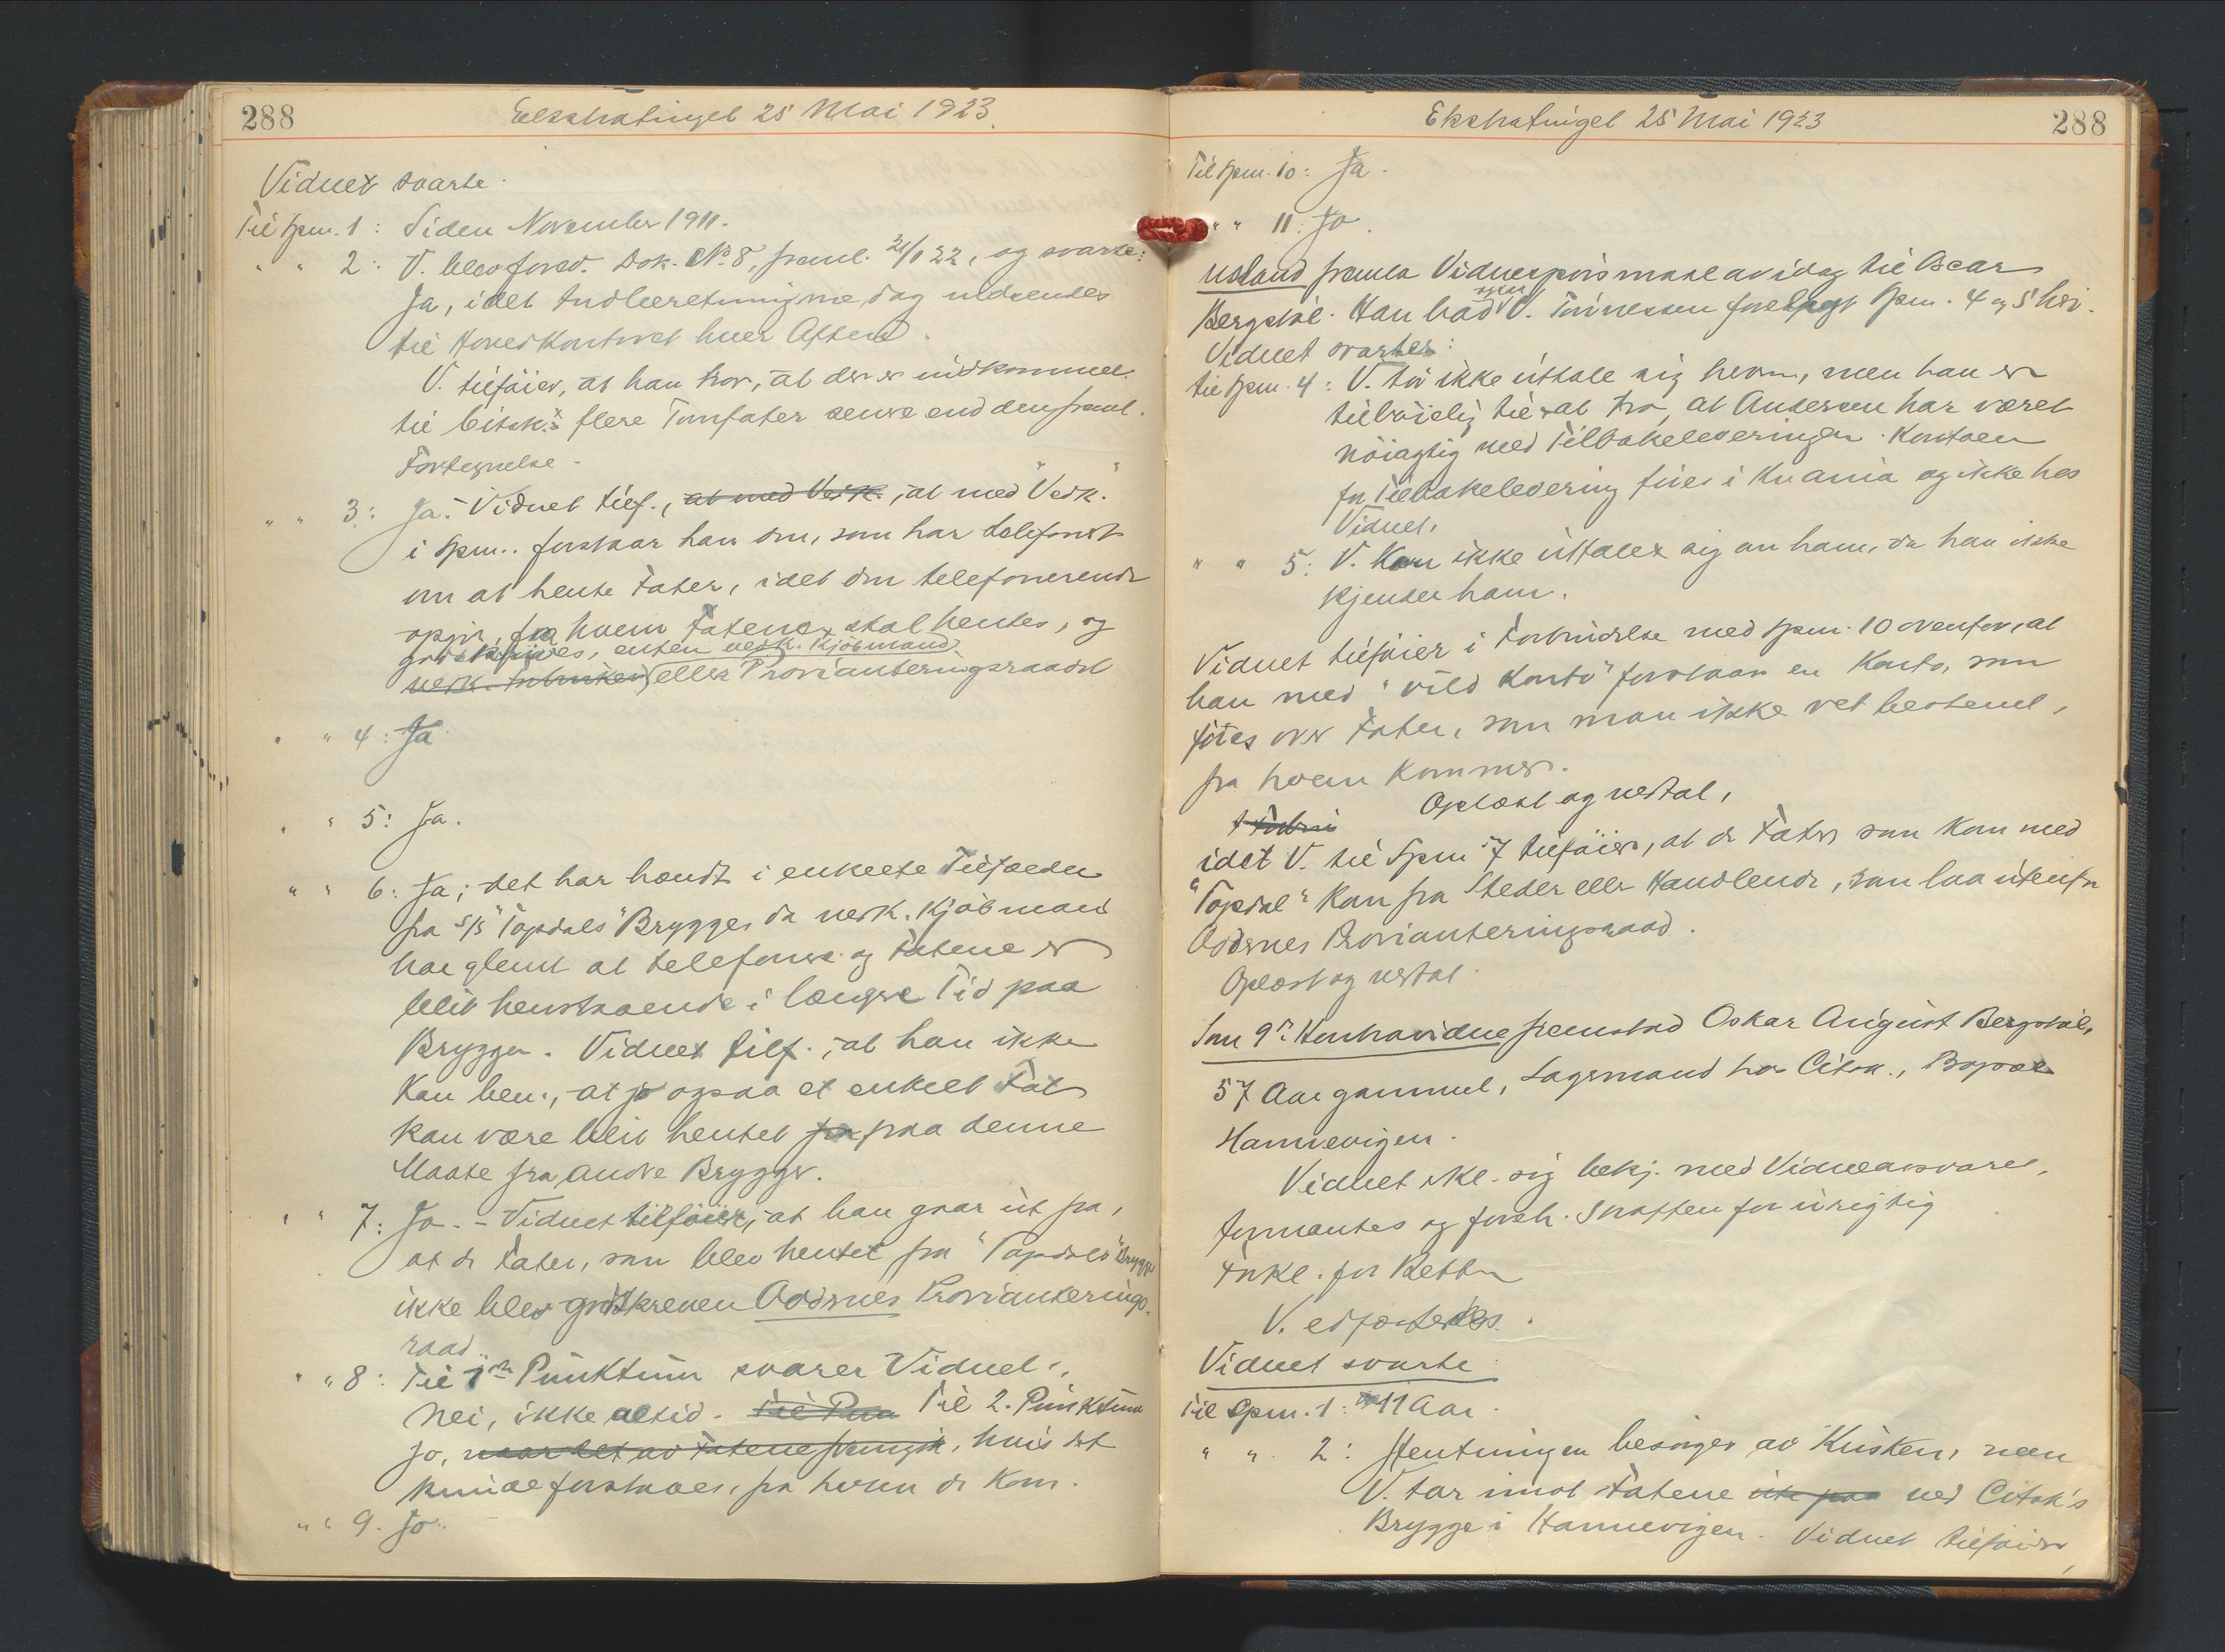 288 Ekstratinget 25 Mai 1923
Vidnet svarte.
Til Spm. 1: Siden November 1911.
" " 2: V. blev forev. Dok. No 8, freml. 21/1 22, og svarte:
Ja, idet Indberetningene dag utsendes
til Hovedkontoret hver Aften.
V. tilføier, at han tror, at der er indkommet
til Citok.s flere Tomfater senere end den freml.
Fortegnelse.
" " 3: Ja. Vidnet tilf., at med Vedk., at med "Vedk."
i Spm. forstaar han den, som har telefonert
om at hente Fater, idet den telefonerende
opgir, fra hvem Fatene skal hentes, og
godskrives, enten vedk. Kjøbmand
eller Provianteringsraadet
" " 4: Ja
" " 5: Ja.
" " 6: Ja; det har hændt i enkelte Tilfælder
fra S/S "Topdals" Brygge, da vedk. Kjøbmand
har glemt at telefonere og Fatene er
blit henstaaende i længere Tid paa
Bryggen. Vidnet tilf., at han ikke
kan ben., at jo ogsaa et enkelt Fat
kan være blit hentet fra paa denne
Maate fra andre Brygger.
" " 7: Jo. – Vidnet tilføier, at han gaar ut fra,
at de Fater, som blev hentet fra "Topdals" Brygge
ikke blev godskreven Oddernes Provianterings-
raad.
" " 8: Til 1ste Punktum svarer Vidnet,
Nei, ikke altid. Til Pun Til 2. Punktum
Jo, naar det av Fatene fremgik, hvis det
kunde forstaaes, fra hvem de kom.
" " 9. Jo.
Ekstratinget 25 Mai 1923 288
Til Spm. 10: Ja.
" " 11: Jo.
fremla Vidnespørsmaal av idag til Oscar
Bergstøl. Han bad ogsaa V. Tønnessen forelagt Spm. 4 og 5 heri.
Vidnet svarte:
Til Spm. 4: V. tør ikke uttale sig herom, men han er
tilbøielig til at tro, at Andersen har været
nøiagtig med Tilbakeleveringen. Kontoen
for Tilbakelevering føres i Kr.ania og ikke hos
Vidnet.
" " 5: V. kan ikke uttale sig om ham, da han ikke
kjender ham.
Vidnet tilføier i Forbindelse med Spm. 10 ovenfor, at
han med "vild Konto" forstaar en Konto, som
føres over Fater, som man ikke vet bestemt,
fra hvem kommer.
Oplæst og vedtat,
idet V. til Spm 7 tilføier, at de Fater som kom med
"Topdal" kom fra Steder eller Handlende, som laa utenfor
Oddernes Provianteringsraad.
Oplæst og vedtat.
Som 9de Kontravidne fremstod Oskar August Bergstøl,
57 Aar gammel, Lagermand hos Citok., Bopæl
Hannevigen.
Vidnet erkl. sig bekj. med Vidneansvaret,
formantes og foreh. Straffen for urigtig
Forkl. for Retten
V. edfæstedes.
Vidnet svarte
Til Spm. 1: 11 Aar.
" " 2: Hentningen besørges av Kusken, men
V. tar imot Fatene ute paa ved Citok's
Brygge i Hannevigen. Vidnet tilføier,